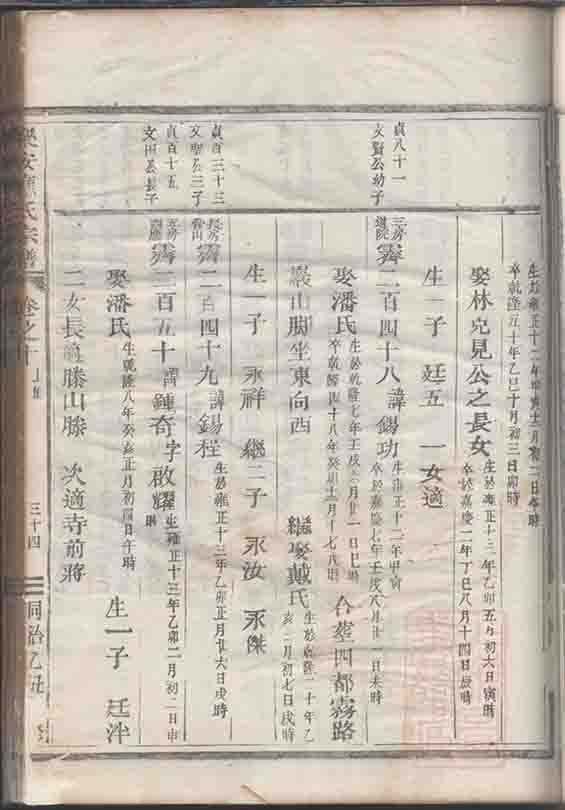 生於雍正十二年甲寅十一月初二日午時
卒乾隆五十年乙巳十月初三日卯時
娶林克見公之長女
生於雍正十三年乙卯五月初六日寅時
卒於嘉慶二年丁巳八月十四日辰時
生一子 廷五 一女適
貞八十一
文賢公幼子
三房
霽二百四十八諱錫功
生雍正十二年甲寅
卒於嘉慶七年壬戌八月廿一日未時
娶潘氏
生於乾隆七年壬戌六月廿一日巳時
卒乾隆四十八年癸卯十一月十七戌時
合葬四都霧路
巖山腳坐東向西
繼娶戴氏
生於乾隆二十年乙
亥二月初七日戌時
生一子 永祥 繼二子 永汝 永傑
貞百三十三
文聖公三子
長房
霽二百四十九諱錫程
生於雍正十三年乙卯正月廿六日戌時
貞百十五
文田公長子
五房
霽二百五十諱鍾奇字啟耀
生雍正十三年乙卯二月初二日申
時
娶潘氏
生乾隆八年癸亥正月初四日午時
生一子 廷泮
二女長適滕山滕 次適寺前蔣
樂安 氏宗譜
卷之十
三十四
同治乙丑